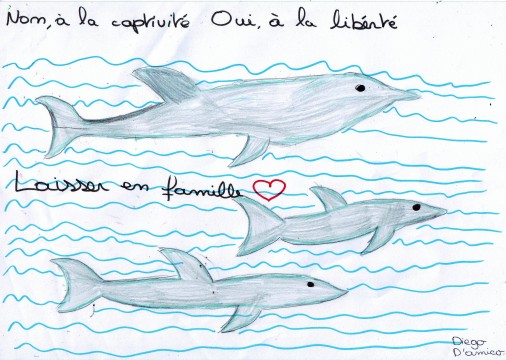 Non, à la captivité Oui, à la liberté
Laisser en famille
Diego
D'amico